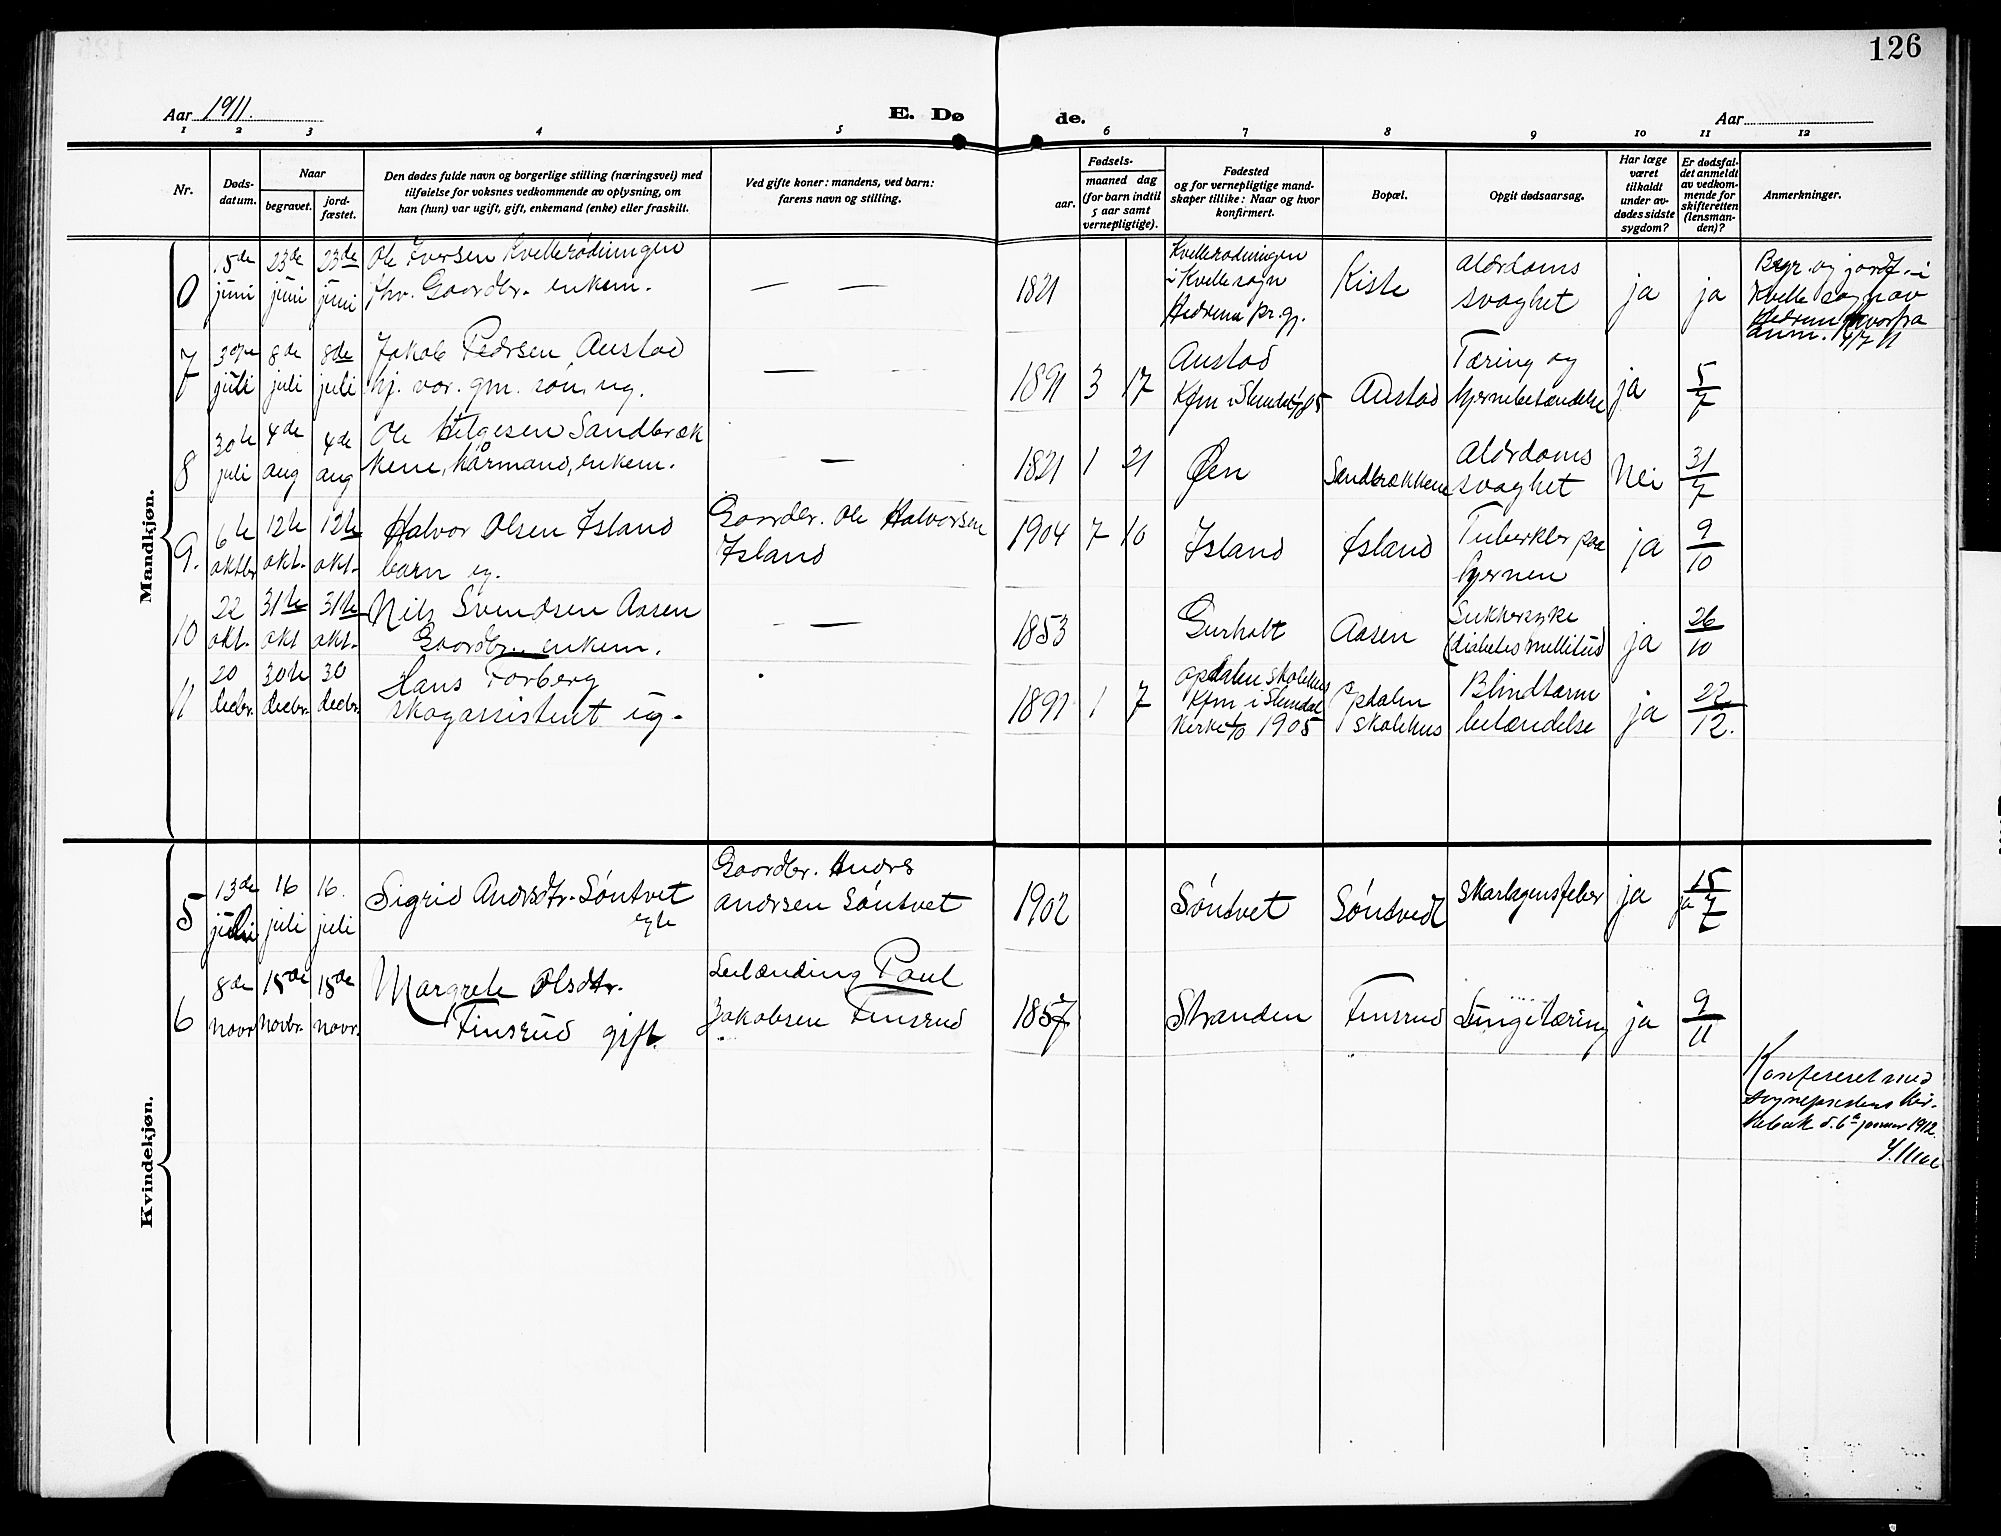 126
Aar 1911.
E. Dø
de.
Aar
1 2 3 4 5
6 7 8 9 10 11 12
Nr.
Døds-
datum.
Naar
begravet.
jord-
fæstet.
Den dødes fulde navn og borgerlige stilling (næringsvei) med
tilføielse for voksnes vedkommende av oplysning, om
han (hun) var ugift, gift, enkemand (enke) eller fraskilt.
Ved gifte koner: mandens, ved barn:
farens navn og stilling.
Fødsels-
aar.
maaned dag
(for barn indtil
5 aar samt
vernepligtige).
Fødested
og for vernepligtige mand-
skaper tillike: Naar og hvor
konfirmert.
Bopæl.
Opgit dødsaarsag.
Har læge
været
tilkaldt
under av-
dødes sidste
sygdom?
Er dødsfal-
det anmeldt
av vedkom-
mende for
skifteretten
(lensman-
den)?
Anmerkninger.
Mandkjøn.
0 15de juni 23de juni 23de juni
Ole Iversen Kvellerødningen
fhv. Gaardbr. enkem.
— —
1821
Kvellerødningen
i Kvelle sogn
Hedrum pr.gj.
Kiste
Alderdoms
svaghet
ja ja
Begr. og jordf. i
Kvelle sogn av
Hedrum hvorfra
anm. 4/7 11
7 30te juli 8de juli 8de juli
Jakob Pedersen Austad
hj. vær. gm. søn, ug.
—
1891 3 17
Austad
Kfm i Slemdal 05
Austad
Tæring og
hjernebetændelse
ja 5/7
8 30te juli 4de aug 4de aug
Ole Helgesen Sandbræk
kene, kårmand, enkem.
—
1821 1 21
Øen
Sandbrækkene
Alderdoms
svaghet
Nei 31/7
9. 6te oktbr 12te okt. 12te okt.
Halvor Olsen Island
barn eg.
Gaardbr. Ole Halvorsen
Island
1904 7 10
Island
Island
Tuberkler paa
hjernen
ja 9/10
10 22 okt. 31te okt 31te okt.
Nils Svendsen Aasen
Gaardbr. enkem.
—
1853
Gurholt
Aasen
Sukkersyke
(diabetes mellitus)
ja 26/10
11 20 decbr. 30te decbr. 30 decbr.
Hans Torberg
skogassistent ug.
1891 1 7
Opdalen skolehus
Kfm i Slemdal
Kirke 1/10 1905
Opdalen
skolehus
Blindtarm
betændelse
ja 22/12.
Kvindekjøn.
5 13de juli 16 juli 16. juli
Sigrid Andrsdtr. Søntvet
egte
Gaardbr. Anders
Andrsen Søntvet
1902
Søntvet
Søntvedt
Skarlagensfeber
ja ja 15/7
6 8de novr 15de novbr. 15de novr.
Margrete Olsdtr.
Finsrud gift.
Leilænding Paul
Jakobsen Finsrud
1857
Stranden
Finsrud
Lungetæring
ja 9/11
Konfereret med
sogneprestens kir-
kebok d. 6te januar 1912.